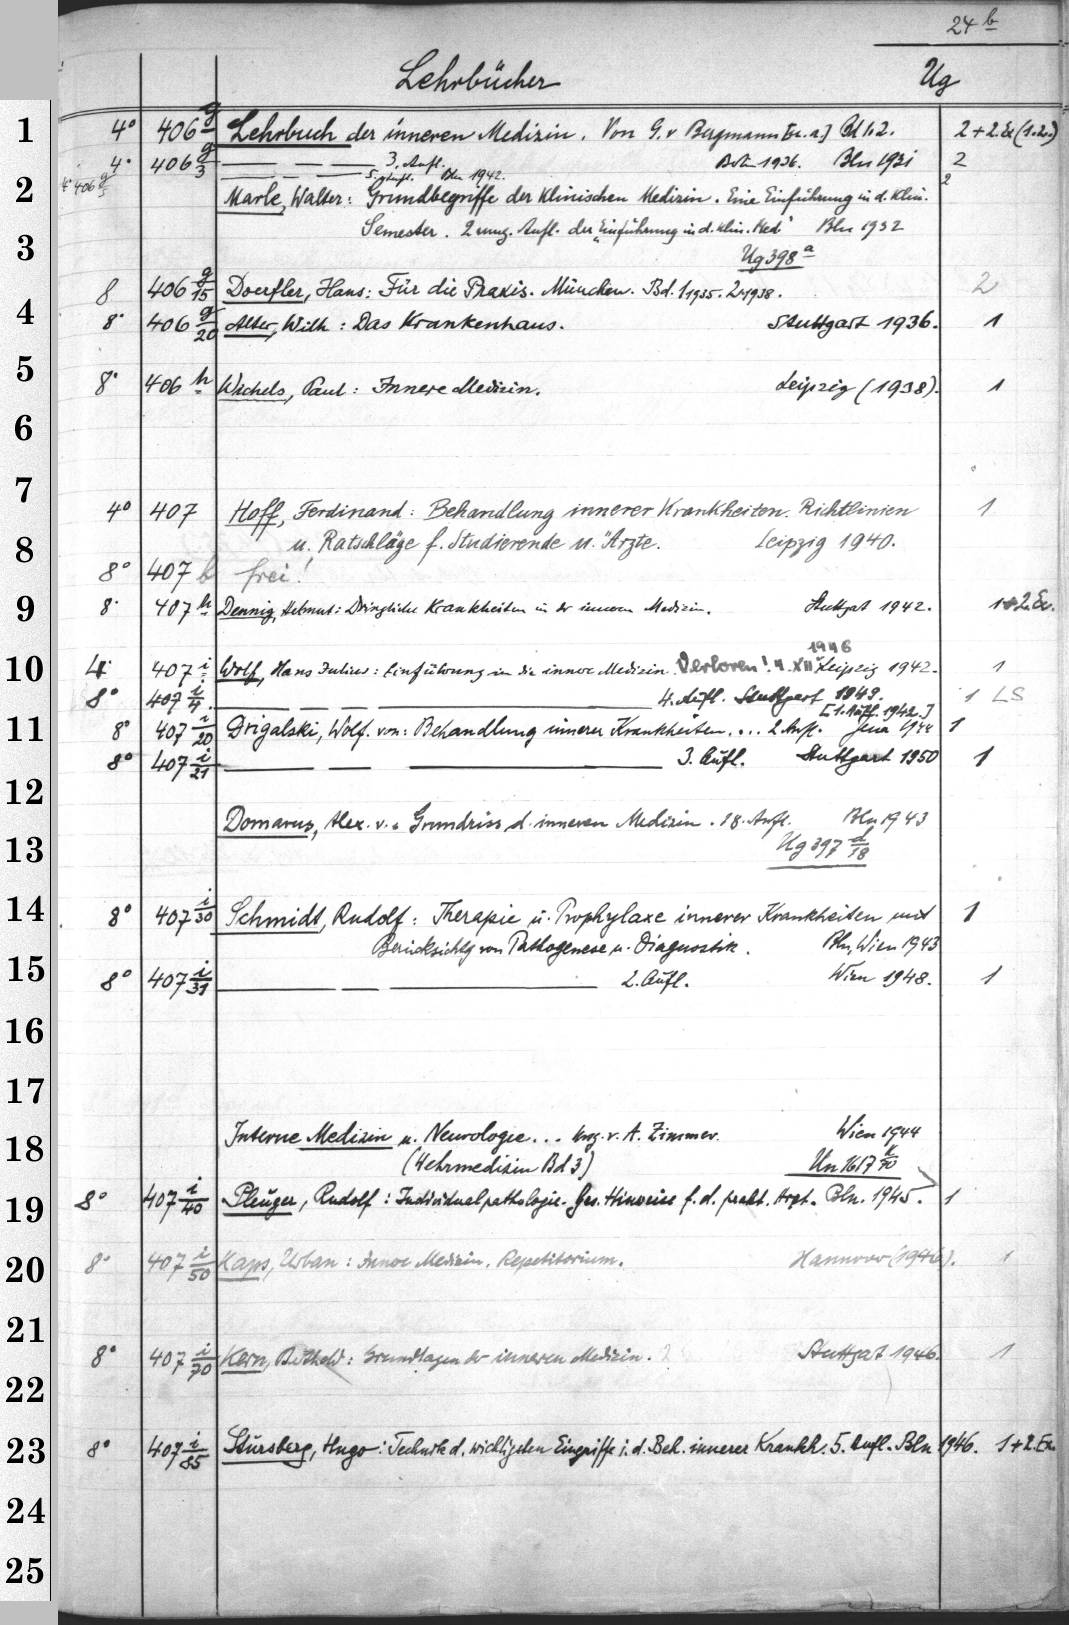 24 b
Lehrbücher Ug
1 4° 406 g Lehrbuch der inneren Medizin. Von G. v Bergmann [u. a.] Bd 1.2. 2 + 2. Ex (1.2.)
4° 406 g/3 — — — 3. Aufl. Bd 1936. Bln 1931 2
4° 406 g/5 — — — 5. Aufl. Bln 1942. 2
2 Marle, Walter: Grundbegriffe der klinischen Medizin. Eine Einführung in d. klin.
Semester. 2 umg. Aufl. der „Einführung in d. klin. Med" Bln 1932
3 Ug 398 a
8 406 g/15 Doerfler, Hans: Für die Praxis. München. Bd. 1 1935. 2 1938. 2
4 8° 406 g/20 Alter, Wilh: Das Krankenhaus. Stuttgart 1936. 1
5 8° 406 h Wichels, Paul: Innere Medizin. Leipzig (1938). 1
6
7 4° 407 Hoff, Ferdinand: Behandlung innerer Krankheiten. Richtlinien 1
8 u. Ratschläge f. Studierende u. Ärzte. Leipzig 1940.
8° 407 b frei!
9 8° 407 h Dennig, Helmut: Dringliche Krankheiten in der inneren Medizin. Stuttgat 1942. 1+2. Ex.
1946
10 4° 407 i Wolf, Hans Julius: Einführung in die innere Medizin. Verloren! 4. XII Leipzig 1942. 1
8° 407 i/4 — — — 4. Aufl. Stuttgart 1949. 1 LS
[1. Aufl. 1942.]
11 8° 407 i/20 Drigalski, Wolf. von: Behandlung innerer Krankheiten. ... 2. Aufl. Jena 1944 1
8° 407 i/21 — — — 3. Aufl. Stuttgart 1950 1
12 Domarus, Alex. v.: Grundriss d. inneren Medizin. 18. Aufl. Bln 1943
13 Ug 397 d/18
14 8° 407 i/30 Schmidt, Rudolf: Therapie u. Prophylaxe innerer Krankheiten mit 1
Berücksichtg von Pathogenese u. Diagnostik. Bln, Wien 1943
15 8° 407 i/31 — — — 2. Aufl. Wien 1948. 1
16
17
Interne Medizin u. Neurologie... hrg. v. A. Zimmer. Wien 1944
18 (Wehrmedizin Bd 3) Un 1617 k/90
19 8° 407 i/40 Pleuger, Rudolf: Individualpathologie. Ges. Hinweise f. d. prakt. Arzt. Bln. 1945. 1
20 8° 407 i/50 Kaps, Urban: Innere Medizin. Repetitorium. Hannover (1946). 1
21
8° 407 i/70 Kern, Berthold: Grundlagen der inneren Medizin. Stuttgat 1946. 1
22
23 8° 407 i/85 Stursberg, Hugo: Technik d. wichtigsten Eingriffe i. d. Beh. innerer Krankh. 5. Aufl. Bln 1946. 1+2. Ex.
24
25